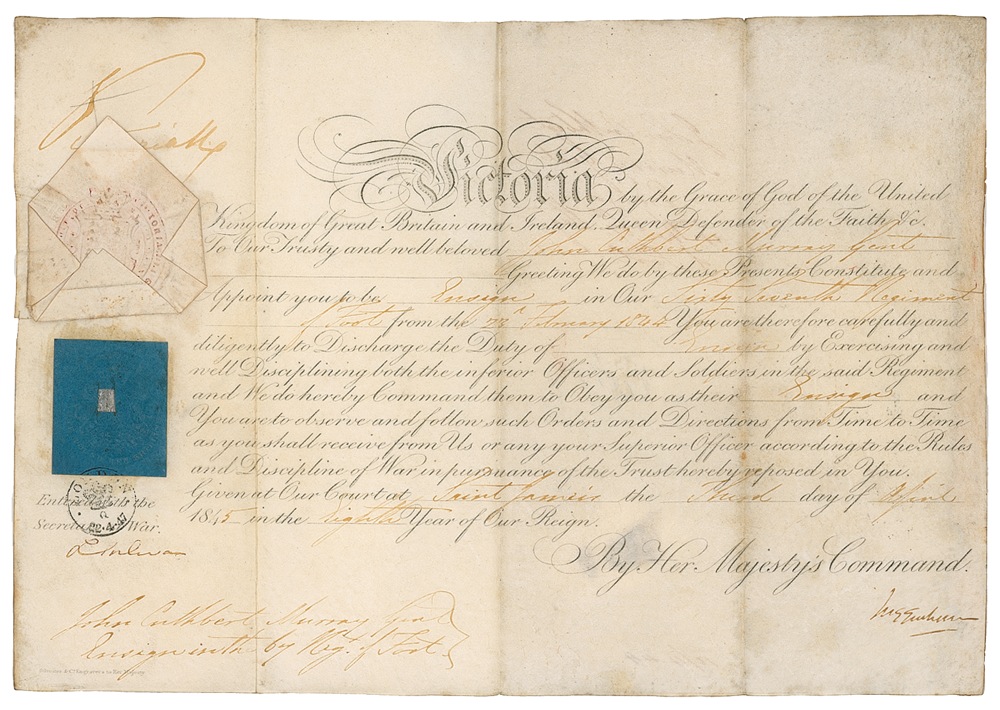 Victoria by the Grace of God of the United
Kingdom of Great Britain and Ireland, Queen, Defender of the Faith &c.
To Our Trusty and well beloved John Cuthbert Murray Gent.
Greeting, We do by these Presents, Constitute and
Appoint you to be Ensign in Our Sixty Seventh Regiment
of Foot from the February 1844 You are therefore carefully and
diligently to Discharge the Duty of Ensign by Exercising and
well Disciplining both the inferior Officers and Soldiers in the said Regiment
and We do hereby Command them to Obey you as their Ensign and
You are to observe and follow such Orders and Directions from Time to Time
as you shall receive from Us or any your Superior Officer according to the Rules
and Discipline of War in pursuance of the Trust hereby reposed in You.
Given at Our Court at Saint James's the Third day of April
1845 in the Eighth Year of Our Reign.
By Her Majesty's Command.
Entered with the
Secretary War.
22·4·47
John Cuthbert Murray Gent
Ensign in the 67 Regt. of Foot